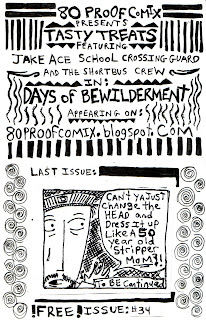 80 PROOF COMIX
PRESENTS
TASTY TREATS
FEATURING
JAKE ACE SCHOOL CROSSING GUARD
AND THE SHORTBUS CREW
IN:
DAYS OF BEWILDERMENT
APPEARING ON:
80PROOFCOMIX.blogspot.COM
LAST ISSUE:
CAN'T YA JUST
CHANGE the
HEAD and
DRESS it up
Like A 50
year old
Stripper
MOM?!
TO BE CONTINUED
!FREE! ISSUE: #34